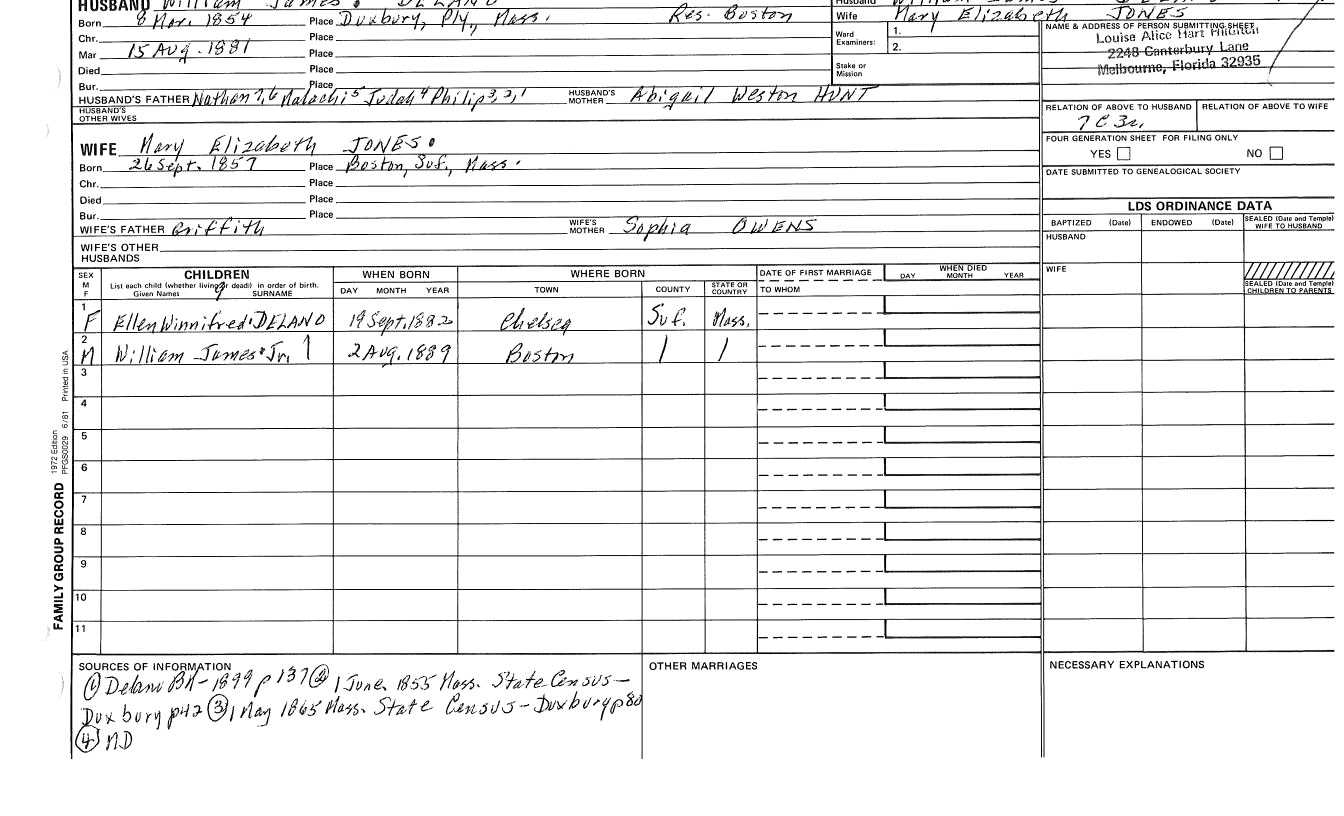 HUSBAND William James DELANO
Husband William James
Wife Mary Elizabeth JONES
Born 8 Mar. 1854 Place Duxbury, Ply, Mass. Res. Boston
Chr. Place
Mar 15 Aug. 1881 Place
Died Place
Bur. Place
Ward Examiners: 1.
2.
Stake or Mission
NAME & ADDRESS OF PERSON SUBMITTING SHEET
Louise Alice Hart
2248 Canterbury Lane
Melbourne, Florida 32935
HUSBAND'S FATHER Nathan 7,6 Malachi 5 Judah 4 Philip 3,2,1 HUSBAND'S MOTHER Abigail Weston HUNT
HUSBAND'S OTHER WIVES
RELATION OF ABOVE TO HUSBAND RELATION OF ABOVE TO WIFE
7 C 3r.
FOUR GENERATION SHEET FOR FILING ONLY
YES NO
DATE SUBMITTED TO GENEALOGICAL SOCIETY
WIFE Mary Elizabeth JONES
Born 26 Sept. 1857 Place Boston, Suf., Mass.
Chr. Place
Died Place
Bur. Place
WIFE'S FATHER Griffith WIFE'S MOTHER Sophia OWENS
WIFE'S OTHER HUSBANDS
LDS ORDINANCE DATA
BAPTIZED (Date) ENDOWED (Date) SEALED (Date and Temple) WIFE TO HUSBAND
HUSBAND
WIFE
SEALED (Date and Temple) CHILDREN TO PARENTS
SEX M F
CHILDREN
List each child (whether living or dead) in order of birth.
Given Names SURNAME
WHEN BORN
DAY MONTH YEAR
WHERE BORN
TOWN COUNTY STATE OR COUNTRY
DATE OF FIRST MARRIAGE
TO WHOM
WHEN DIED
DAY MONTH YEAR
1 F Ellen Winnifred DELANO 19 Sept. 1882 Chelsea Suf. Mass.
2 M William James Jr. 2 Aug. 1889 Boston
3
4
5
6
7
8
9
10
11
FAMILY GROUP RECORD
1972 Edition
PFGS0029 6/81 Printed in USA
SOURCES OF INFORMATION
① Delano BK-1899 p 137 ② 1 June, 1855 Mass. State Census-
Duxbury p42 ③ 1 May 1865 Mass. State Census-Duxbury p80
④ MD
OTHER MARRIAGES
NECESSARY EXPLANATIONS